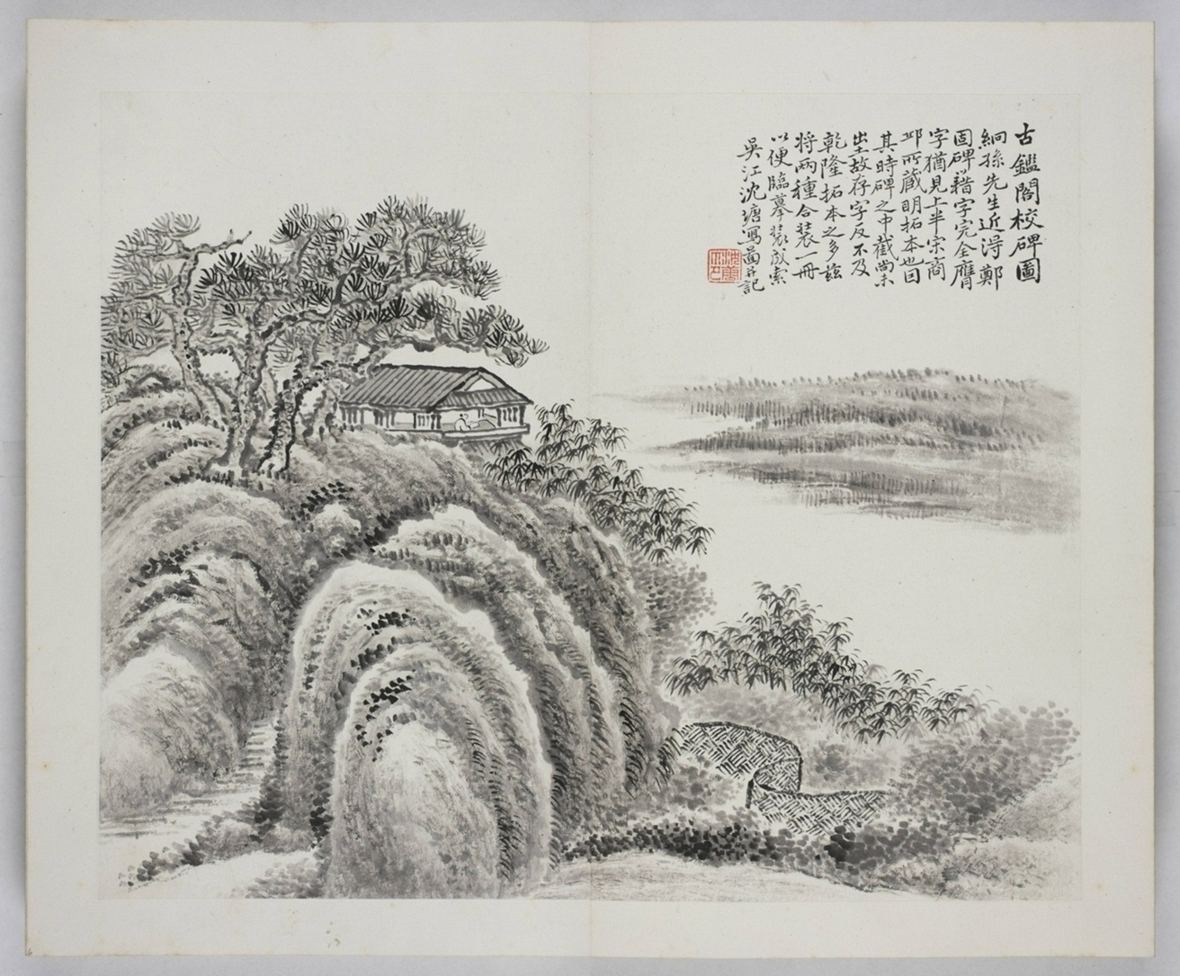 古鑑閣校碑圖
絅孫先生近淂鄭
固碑藉字完全膺
字猶見上半宋商
邱所藏明拓本也因
其時碑之中截尚未
出土故存字反不及
乾隆拓本之多茲
將兩種合裝一冊
以便臨摹裝成索
吳江沈塘寫圖并記